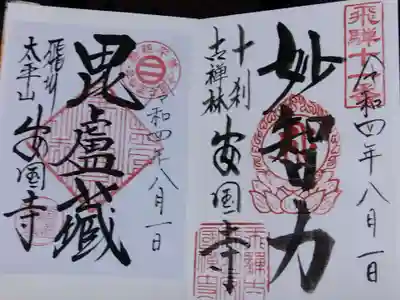 令和四年八月一日
妙智力
十刹
古禅林
安国寺
令和四年八月一日
毘盧蔵
太平山
安国寺